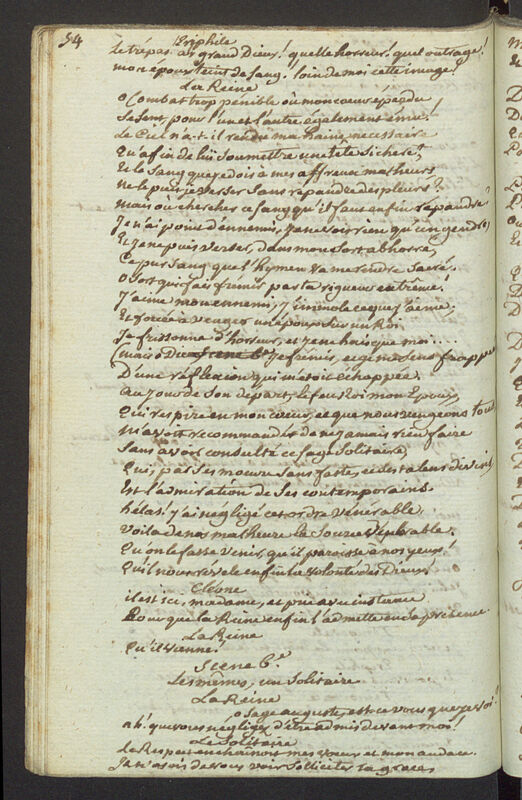 54
Eriphile
le trépas ah grand Dieux! quelle horreur! quel outrage!
mon époux teint de sang. loin de moi cette image!
La Reine
o Combat trop pénible où mon coeur éperdu
se sent pour l'un et l'autre également ému!
le Ciel n'a-t-il rendu ma haine nécessaire
qu'afin de lui soumettre une tête si chere?
et le sang que je dois à mes affreux malheurs
ne le puis-je verser sans répandre des pleurs?
mais où chercher ce sang qu'il faut enfin répandre?
Je n'ai point d'ennemis, je ne vois rien qu'un gendre,
et je ne puis verser, dans mon sort abhorré,
ce pur sang que l'hymen va me rendre sacré.
o sort qui fais frémir par ta rigueur extrême!
J'aime mon ennemi, j'immole ce que j'aime;
et forcée à venger un époux sur un Roi,
Je frissonne d'horreur, et je ne hais que moi....
(mais o Dieu je frémis, et je me sens frapper
D'une réflexion qui m'étoit échappée.
au jour de son départ, le feu Roi mon Epoux,
qui respire en mon coeur, et que nous vengeons tous
m'avoit recommandé de ne jamais rien faire
sans avoir consulté ce sage Solitaire,
qui, par ses moeurs sans faste, et des talens divins,
est l'admiration de ses contemporains.
hélas! j'ai négligé cet ordre vénérable.
voila de nos malheurs la source déplorable.
qu'on le fasse venir, qu'il paroisse à nos yeux!
qu'il nous révele enfin la volonté des Dieux!
Cléone
il est ici, madame, et prie avec instance
Pour que la Reine enfin l'admette en sa présence
La Reine
qu'il vienne!
Scene 6.e
Les mêmes, un Solitaire
La Reine
o sage auguste, est-ce vous que je voi!
ah! que vous négligez d'être admis devant moi!
Le Solitaire
le Respect enchainoit mes voeux et mon audace.
Je n'osois de vous voir solliciter la grace,